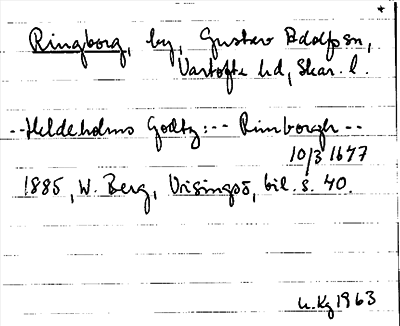 Ringborg, by, Gustav Adolfs sn,
Vartofta hd, Skar. l.
--Heldeholms Godtz:-- Rinborgh--
10/3 1677
1885, W. Berg, Visingsö, bil. s. 40.
u.Kg 1963